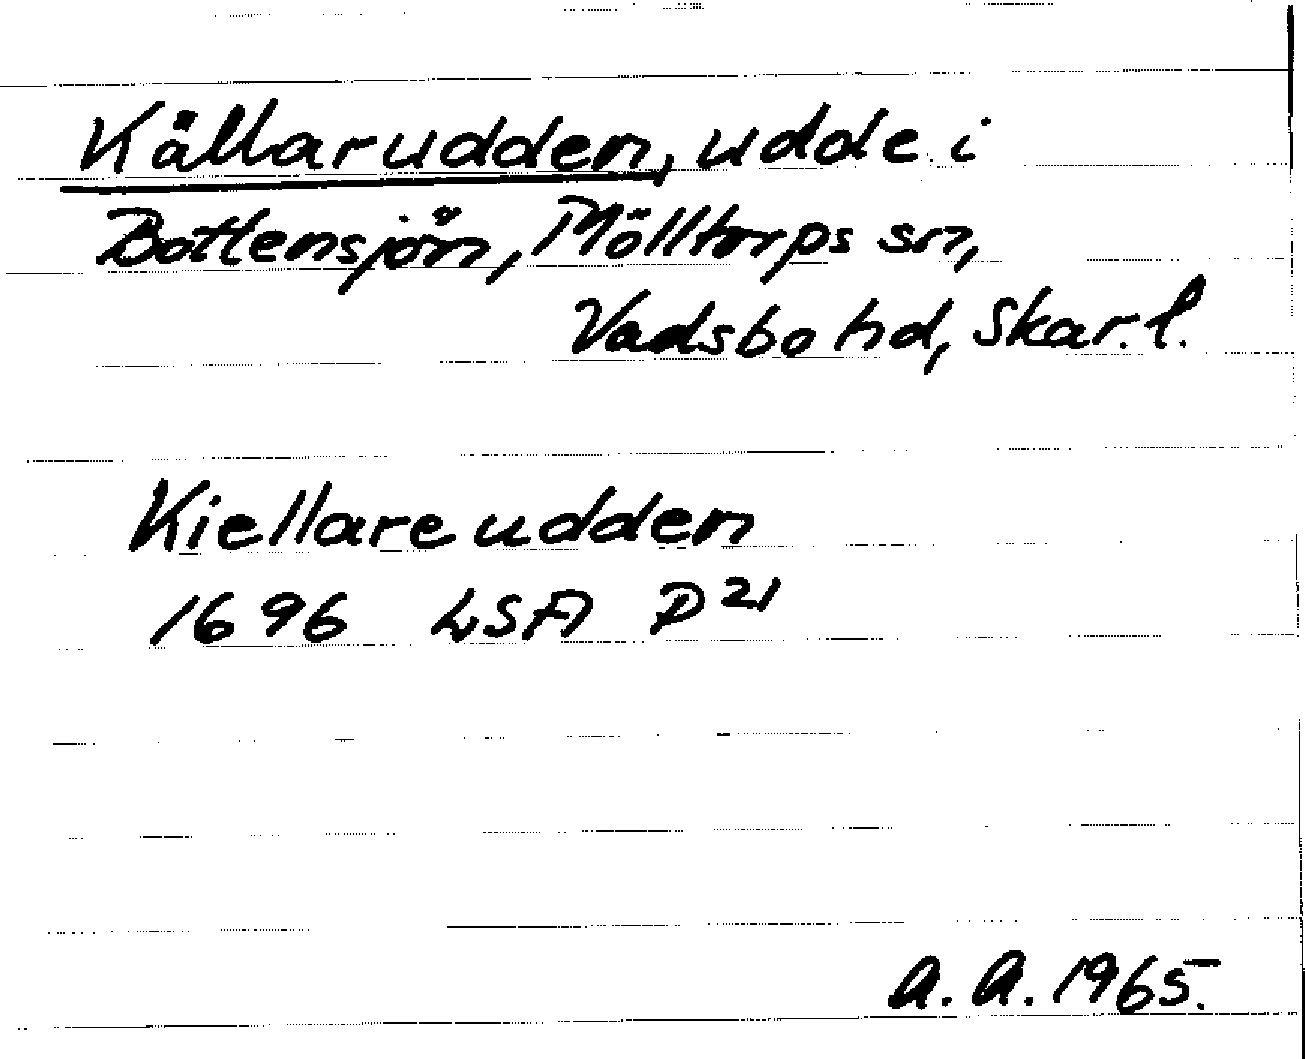 Källarudden, udde i
Bottensjön, Mölltorps sn,
Vadsbo hd, Skar. l.
Kiellare udden
1696 LSA P21
A. A. 1965.